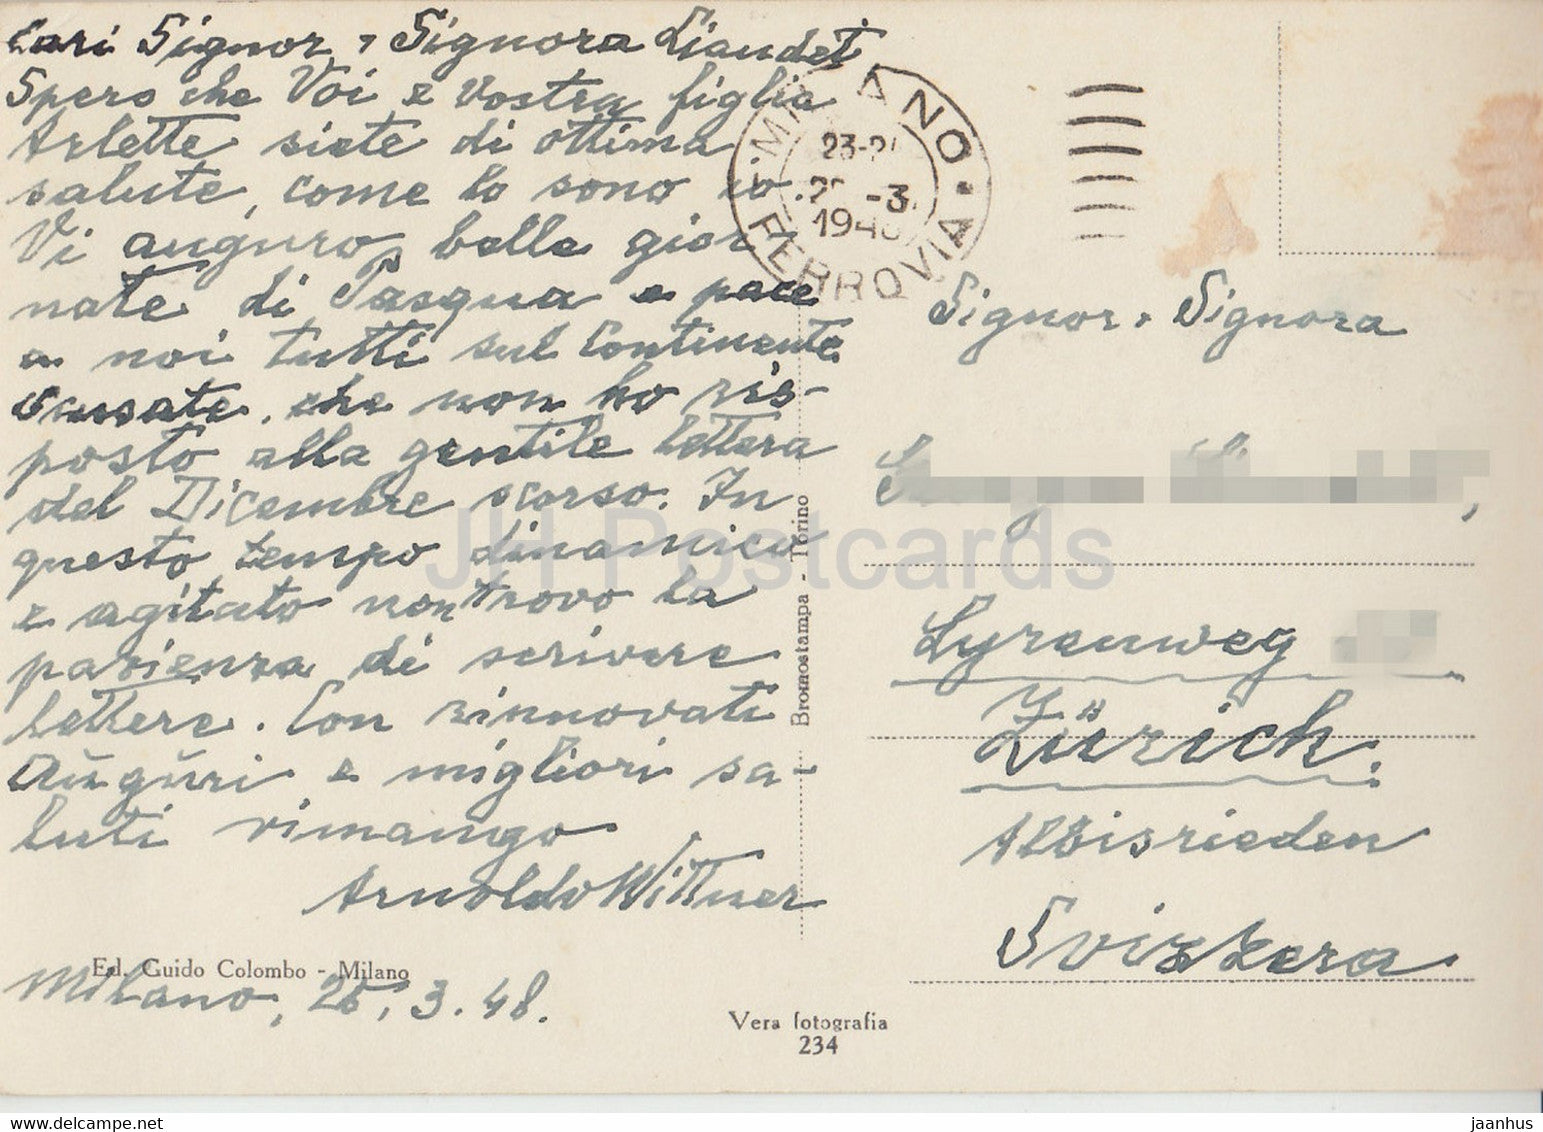 Cari Signor e Signora Liaudet
Spero che Voi e Vostra figlia
Arlette siete di ottima
salute, come lo sono io.
Vi auguro, belle gior-
nate di Pasqua e pace
a noi tutti sul Continente
Scusate, che non ho ris-
posto alla gentile lettera
del Dicembre scorso. In
questo tempo dinamico
e agitato non trovo la
pazienza di scrivere
lettere. Con rinnovati
Auguri e migliori sa-
luti rimango
Arnoldo Wittner
Ed. Guido Colombo - Milano
Milano, 25. 3. 48.
MILANO
FERROVIA
23-24
-3.
Bromostampa - Torino
Vera fotografia
234
Signor e Signora
Lyrenweg
Zürich.
Albisrieden
Svizzera
JH Postcards
delcampe.net
jaanhus